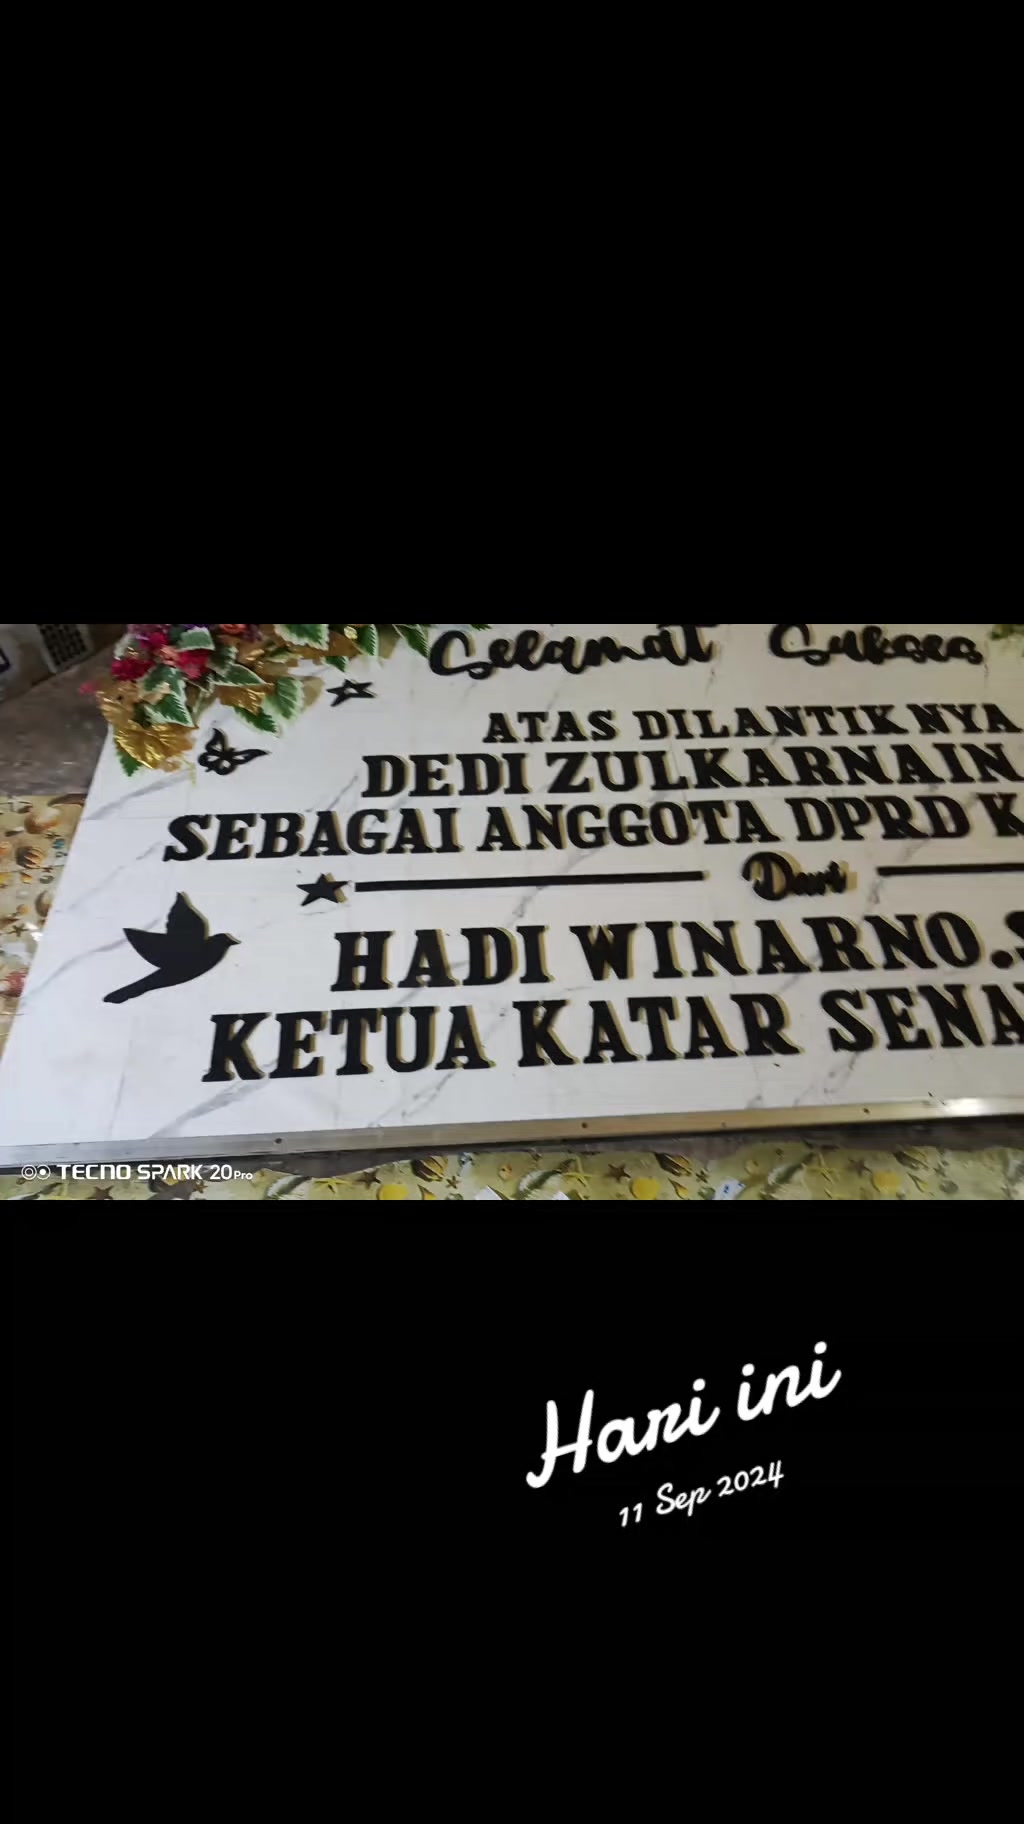 Selamat Sukses
ATAS DILANTIK NYA
DEDI ZULKARNAIN
SEBAGAI ANGGOTA DPRD K
Dari
HADI WINARNO.S
KETUA KATAR SENA
TECNO SPARK 20Pro
Hari ini
11 Sep 2024